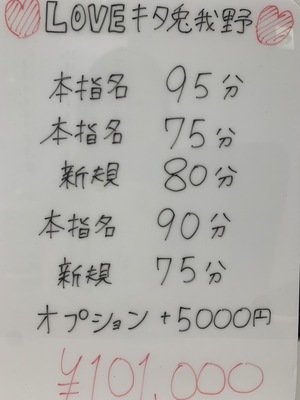 LOVEキタ兎我野
本指名 95分
本指名 75分
新規 80分
本指名 90分
新規 75分
オプション +5000円
¥101,000